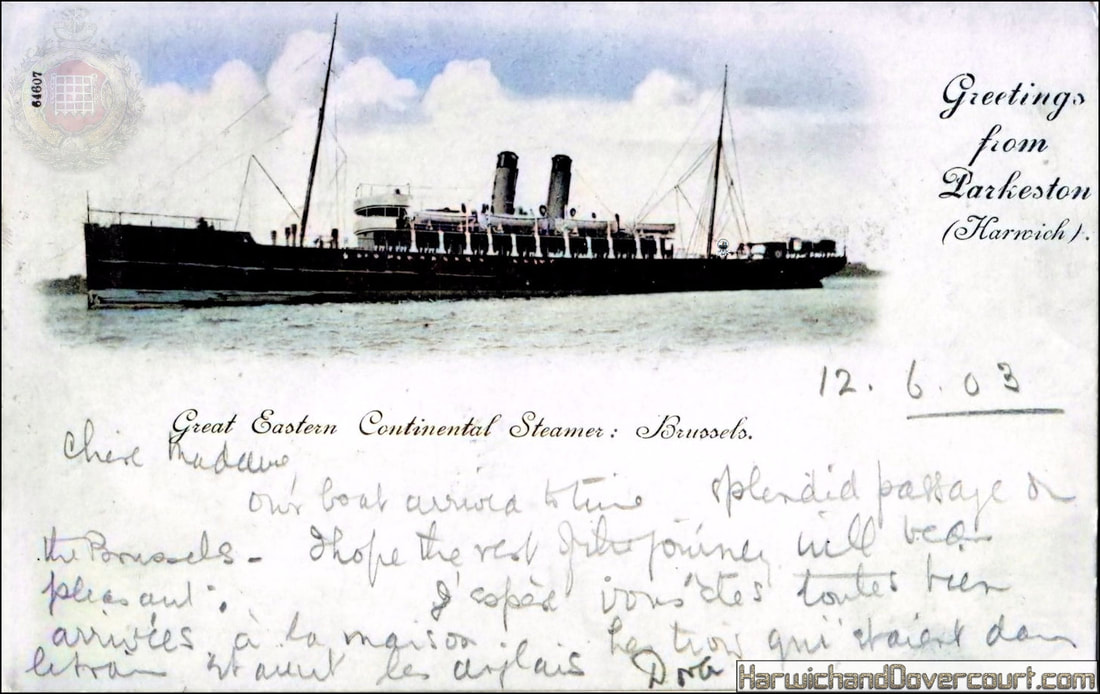 64607
Greetings
from
Parkeston
(Harwich).
12. 6. 03
Great Eastern Continental Steamer: Brussels.
Chère Madame
our boat arrived to time splendid passage on
the Brussels – I hope the rest of the journey will be as
pleasant. J'espère vous êtes toutes bien
arrivées à la maison trois qui étaient dans
le train étaient les anglais Dora
HarwichandDovercourt.com